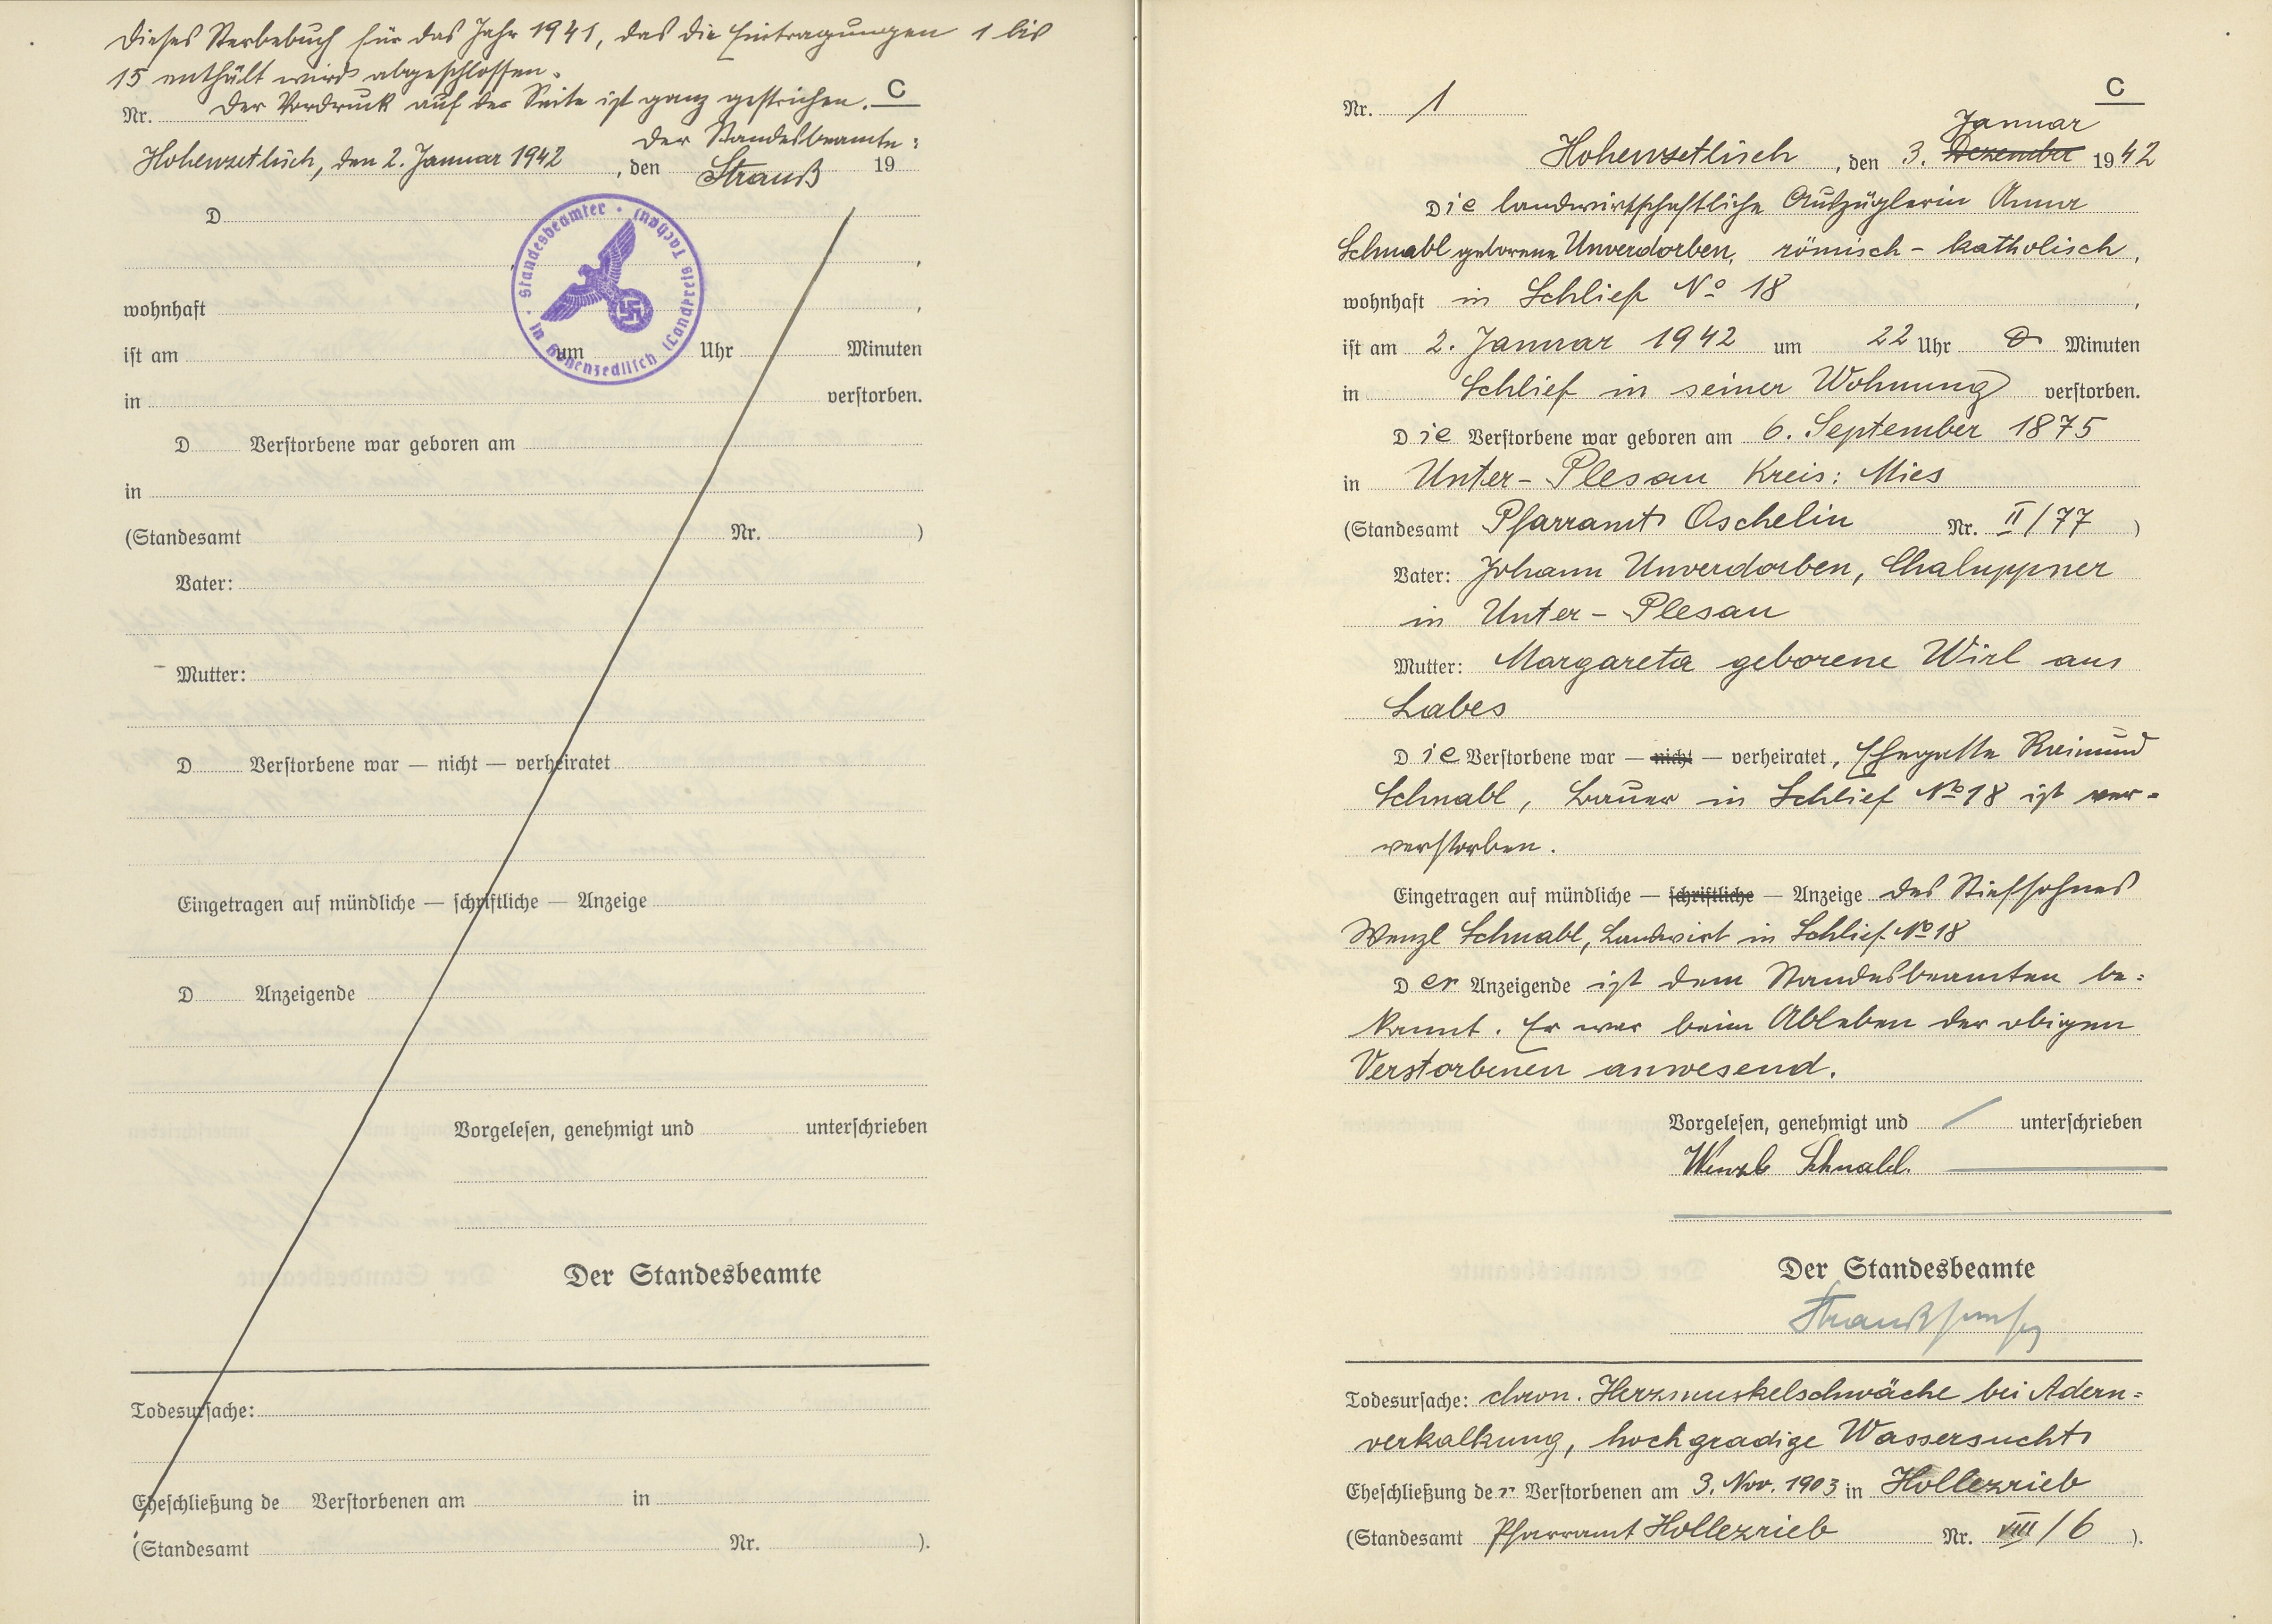 Dieses Sterbebuch für das Jahr 1941, das die Eintragungen 1 bis
15 enthält wird abgeschlossen.
Der Vordruck auf der Seite ist ganz gestrichen.
C
Nr.
Der Standesbeamte:
Hohenzetlisch, den 2. Januar 1942 , den Strauß 19
D
· Standesbeamter · in Hohenzedlisch (Landkreis Tachau)
,
wohnhaft ,
ist am um Uhr Minuten
in verstorben.
D Verstorbene war geboren am
in
(Standesamt Nr. )
Vater:
Mutter:
D Verstorbene war — nicht — verheiratet
Eingetragen auf mündliche — schriftliche — Anzeige
D Anzeigende
Vorgelesen, genehmigt und unterschrieben
Der Standesbeamte
Todesursache:
Eheschließung de Verstorbenen am in
(Standesamt Nr. ).
C
Nr. 1
Januar
Hohenzetlisch , den 3. Dezember 1942
Die landwirtschaftliche Auszüglerin Anna
Schnabl geborene Unverdorben, römisch-katholisch,
wohnhaft in Schlief No 18 ,
ist am 2. Januar 1942 um 22 Uhr 0 Minuten
in Schlief in seiner Wohnung verstorben.
Die Verstorbene war geboren am 6. September 1875
in Unter-Plesau Kreis: Mies
(Standesamt Pfarramt Oschelin Nr. II/77 )
Vater: Johann Unverdorben, Chaluppner
in Unter-Plesau
Mutter: Margareta geborene Wirl aus
Labes
Die Verstorbene war — nicht — verheiratet, Ehegatte Reimund
Schnabl, Bauer in Schlief No 18 ist ver-
verstorben.
Eingetragen auf mündliche — schriftliche — Anzeige des Stiefsohnes
Wenzl Schnabl, Landwirt in Schlief No 18
Der Anzeigende ist dem Standesbeamten be=
kannt. Er war beim Ableben der obigen
Verstorbenen anwesend.
Vorgelesen, genehmigt und unterschrieben
Wenzl Schnabl.
Der Standesbeamte
Strauß
Todesursache: chron. Herzmuskelschwäche bei Adern=
verkalkung, hochgradige Wassersucht
Eheschließung der Verstorbenen am 3. Nov. 1903 in Hollezrieb
(Standesamt Pfarramt Hollezrieb Nr. VIII/6 ).